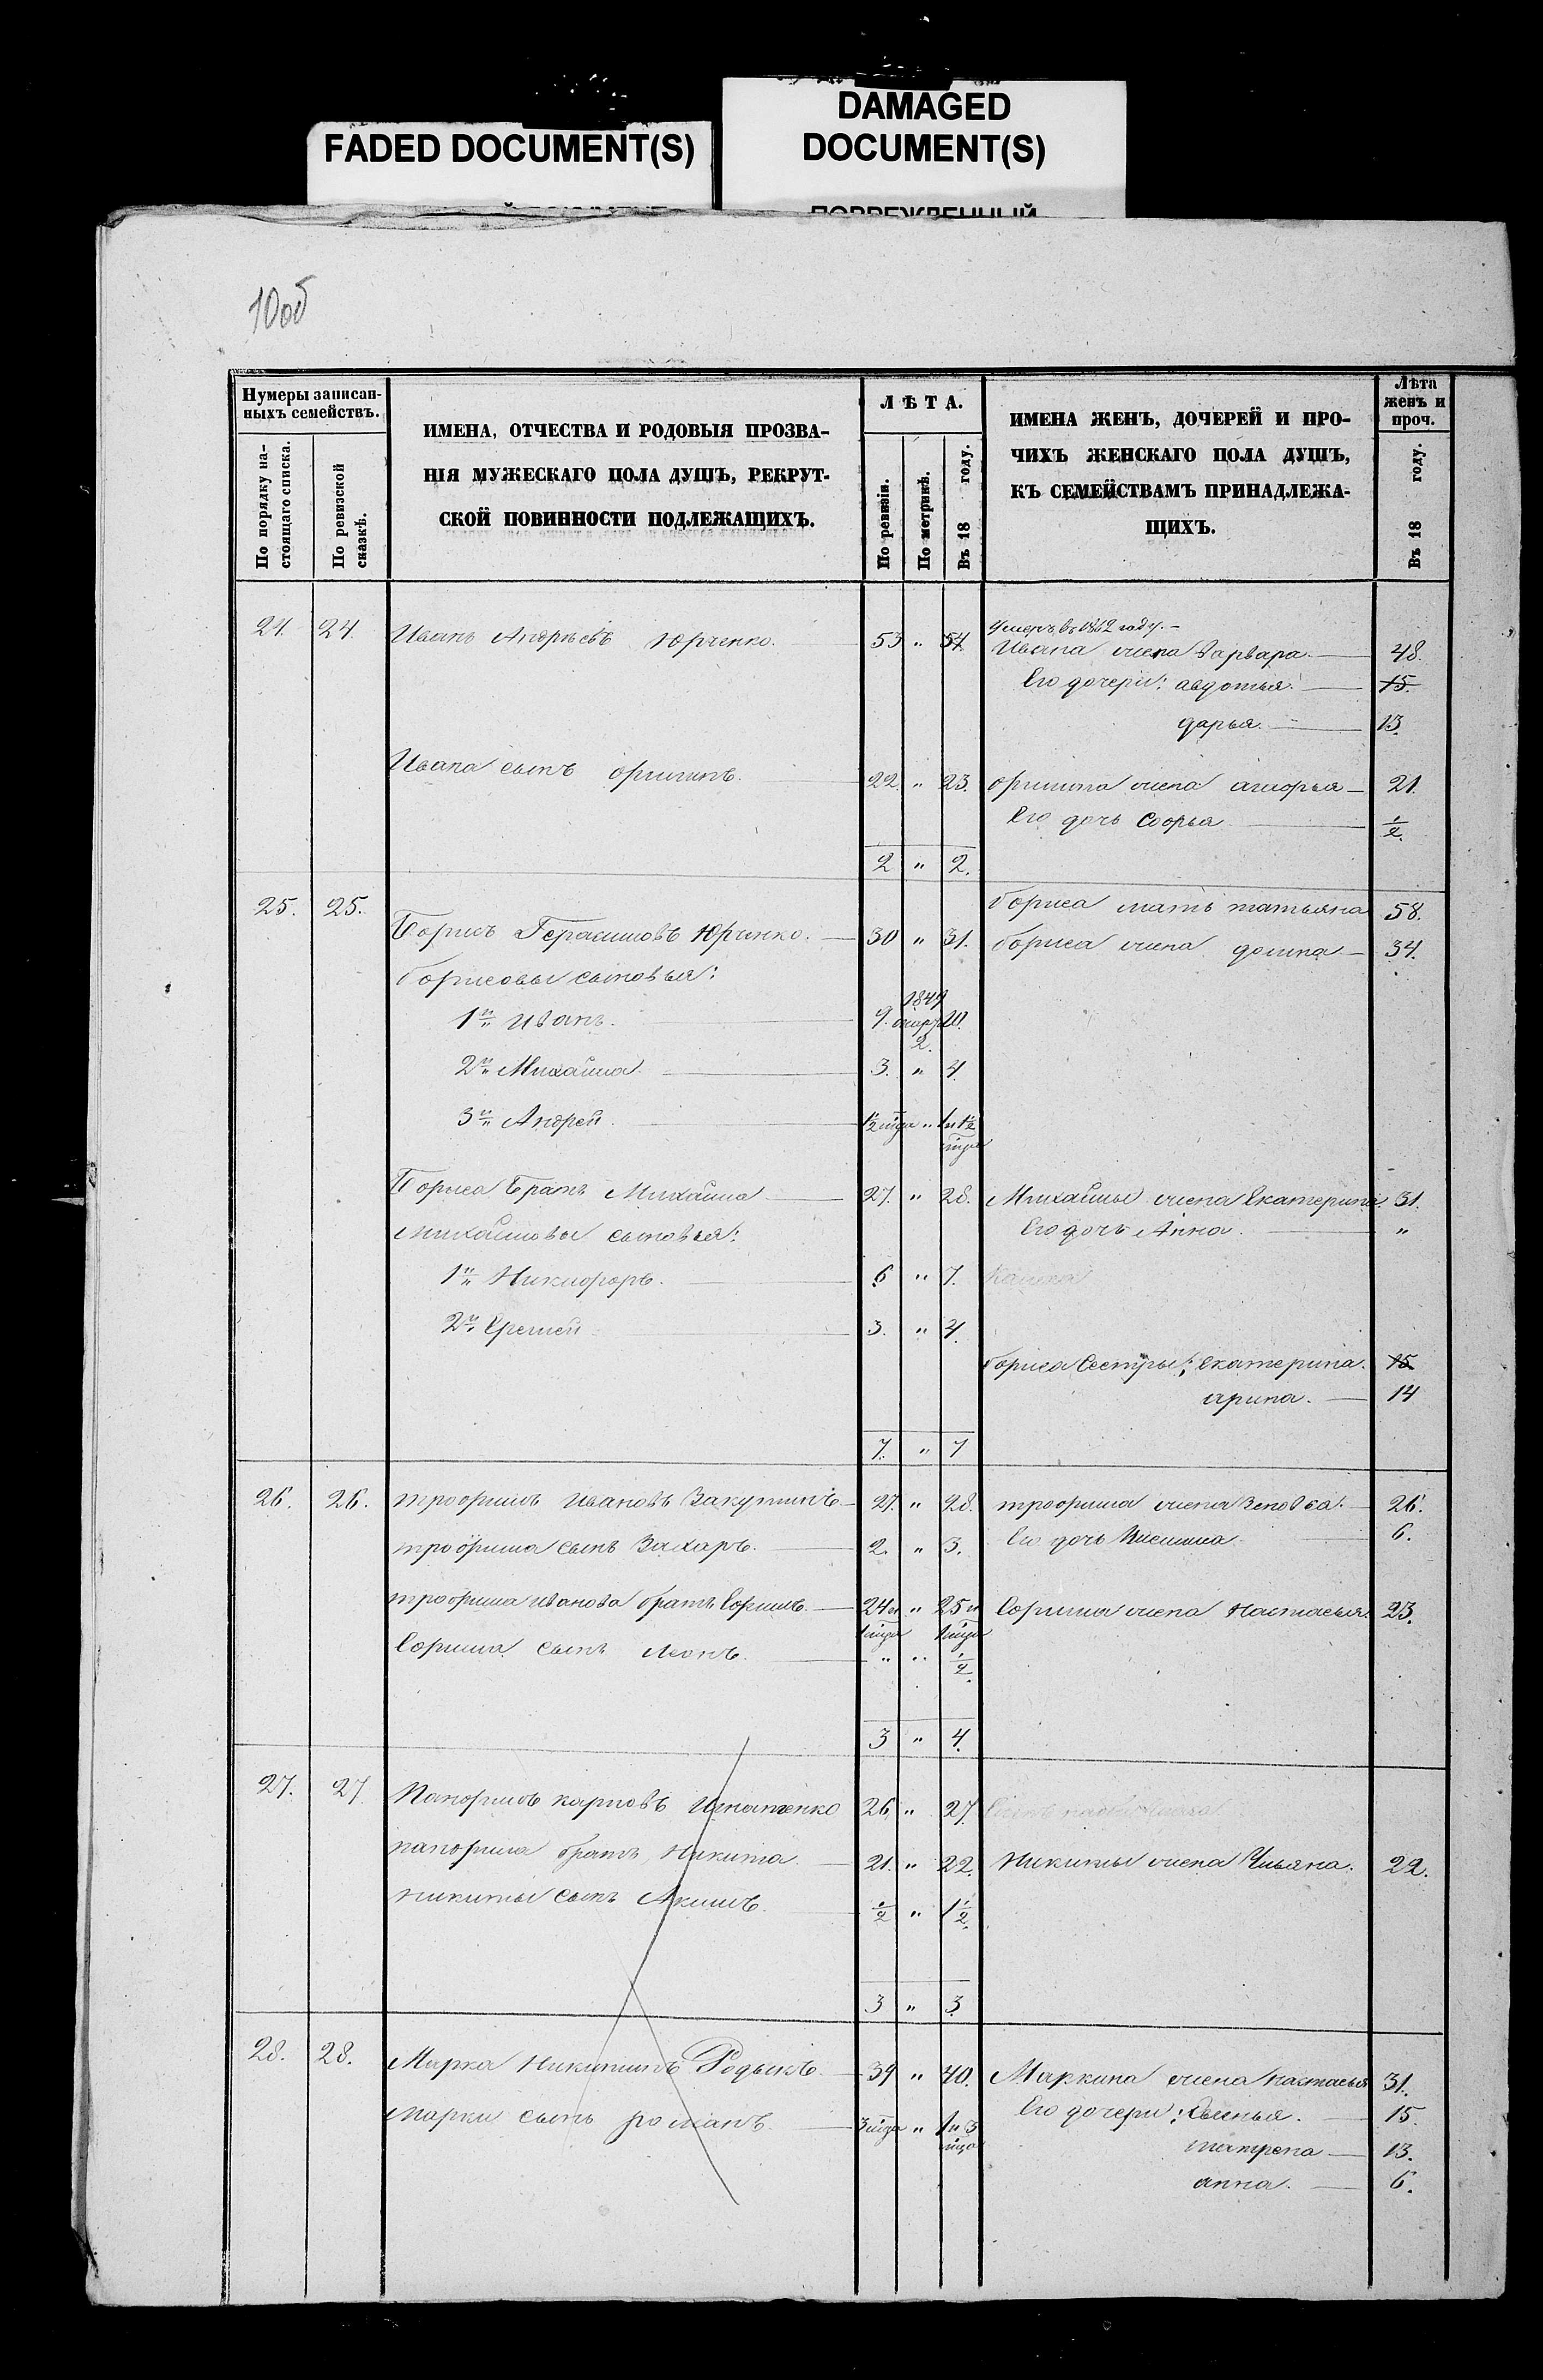 FADED DOCUMENT(S)
DAMAGED
DOCUMENT(S)
ПОВРЕЖДЕННЫЙ
10об
Нумеры записан-
ныхъ семействъ.
По порядку на-
стоящаго списка.
По ревизской
сказкѣ.
ИМЕНА, ОТЧЕСТВА И РОДОВЫЯ ПРОЗВА-
НІЯ МУЖЕСКАГО ПОЛА ДУШЪ, РЕКРУТ-
СКОЙ ПОВИННОСТИ ПОДЛЕЖАЩИХЪ.
ЛѢТА.
По ревизіи.
По метрикѣ.
Въ 18 году.
ИМЕНА ЖЕНЪ, ДОЧЕРЕЙ И ПРО-
ЧИХЪ ЖЕНСКАГО ПОЛА ДУШЪ,
КЪ СЕМЕЙСТВАМЪ ПРИНАДЛЕЖА-
ЩИХЪ.
Лѣта
женъ и
проч.
Въ 18 году.
умеръ въ 1862 году.
24. 24. Иванъ Андрѣевъ Юрченко. 53 " 54 Ивана жена Варвара. 48.
Его дочери: авдотья. 15.
дарья. 13.
Ивана сынъ 22. " 23. жена 21.
Его дочь Софья 1/2.
2 " 2.
Бориса мать татьяна 58.
25. 25. Борисъ Герасимовъ Юрченко. 30 " 31. Бориса жена домна 34.
Борисовы сыновья:
1й Иванъ. 9. 1849 2. 10.
2й Михайла 3. " 4.
3й Андрей. 1/2 мца " 1 и 1/2 мца
Бориса Братъ Михайла 27. " 28. Михайлы жена Екатерина. 31.
Михайловы сыновья: Его дочь Анна. "
1й Никифоръ. 6 " 7.
2й Еремей 3. " 4.
Бориса Сестры: Екатерина. 15.
арина. 14
7. " 7
26. 26. трофимъ Ивановъ Закутинъ 27. " 28. трофима жена Зеновья. 26.
трофима сынъ Захаръ. 2. " 3. Его дочь 6.
трофима Иванова братъ Ефимъ. 24 и 1 мца " 25 и 1 мца Ефима жена Настасья. 23.
Ефима сынъ Леонъ. " " 1/2.
3 " 4.
27. 27 Панфилъ карповъ Игнатенко 26 " 27.
панфила братъ Никита. 21. " 22. Никиты жена Ульяна. 22.
никиты сынъ Акимъ. 1/2 " 1 1/2.
3 " 3
28. 28. Марка Никитинъ Родыкъ 39 " 40. Маркина жена Настасья 31.
марки сынъ романъ 3 мца " 1 и 3 мца Его дочери: Аксенья. 15.
матрена 13.
анна. 6.